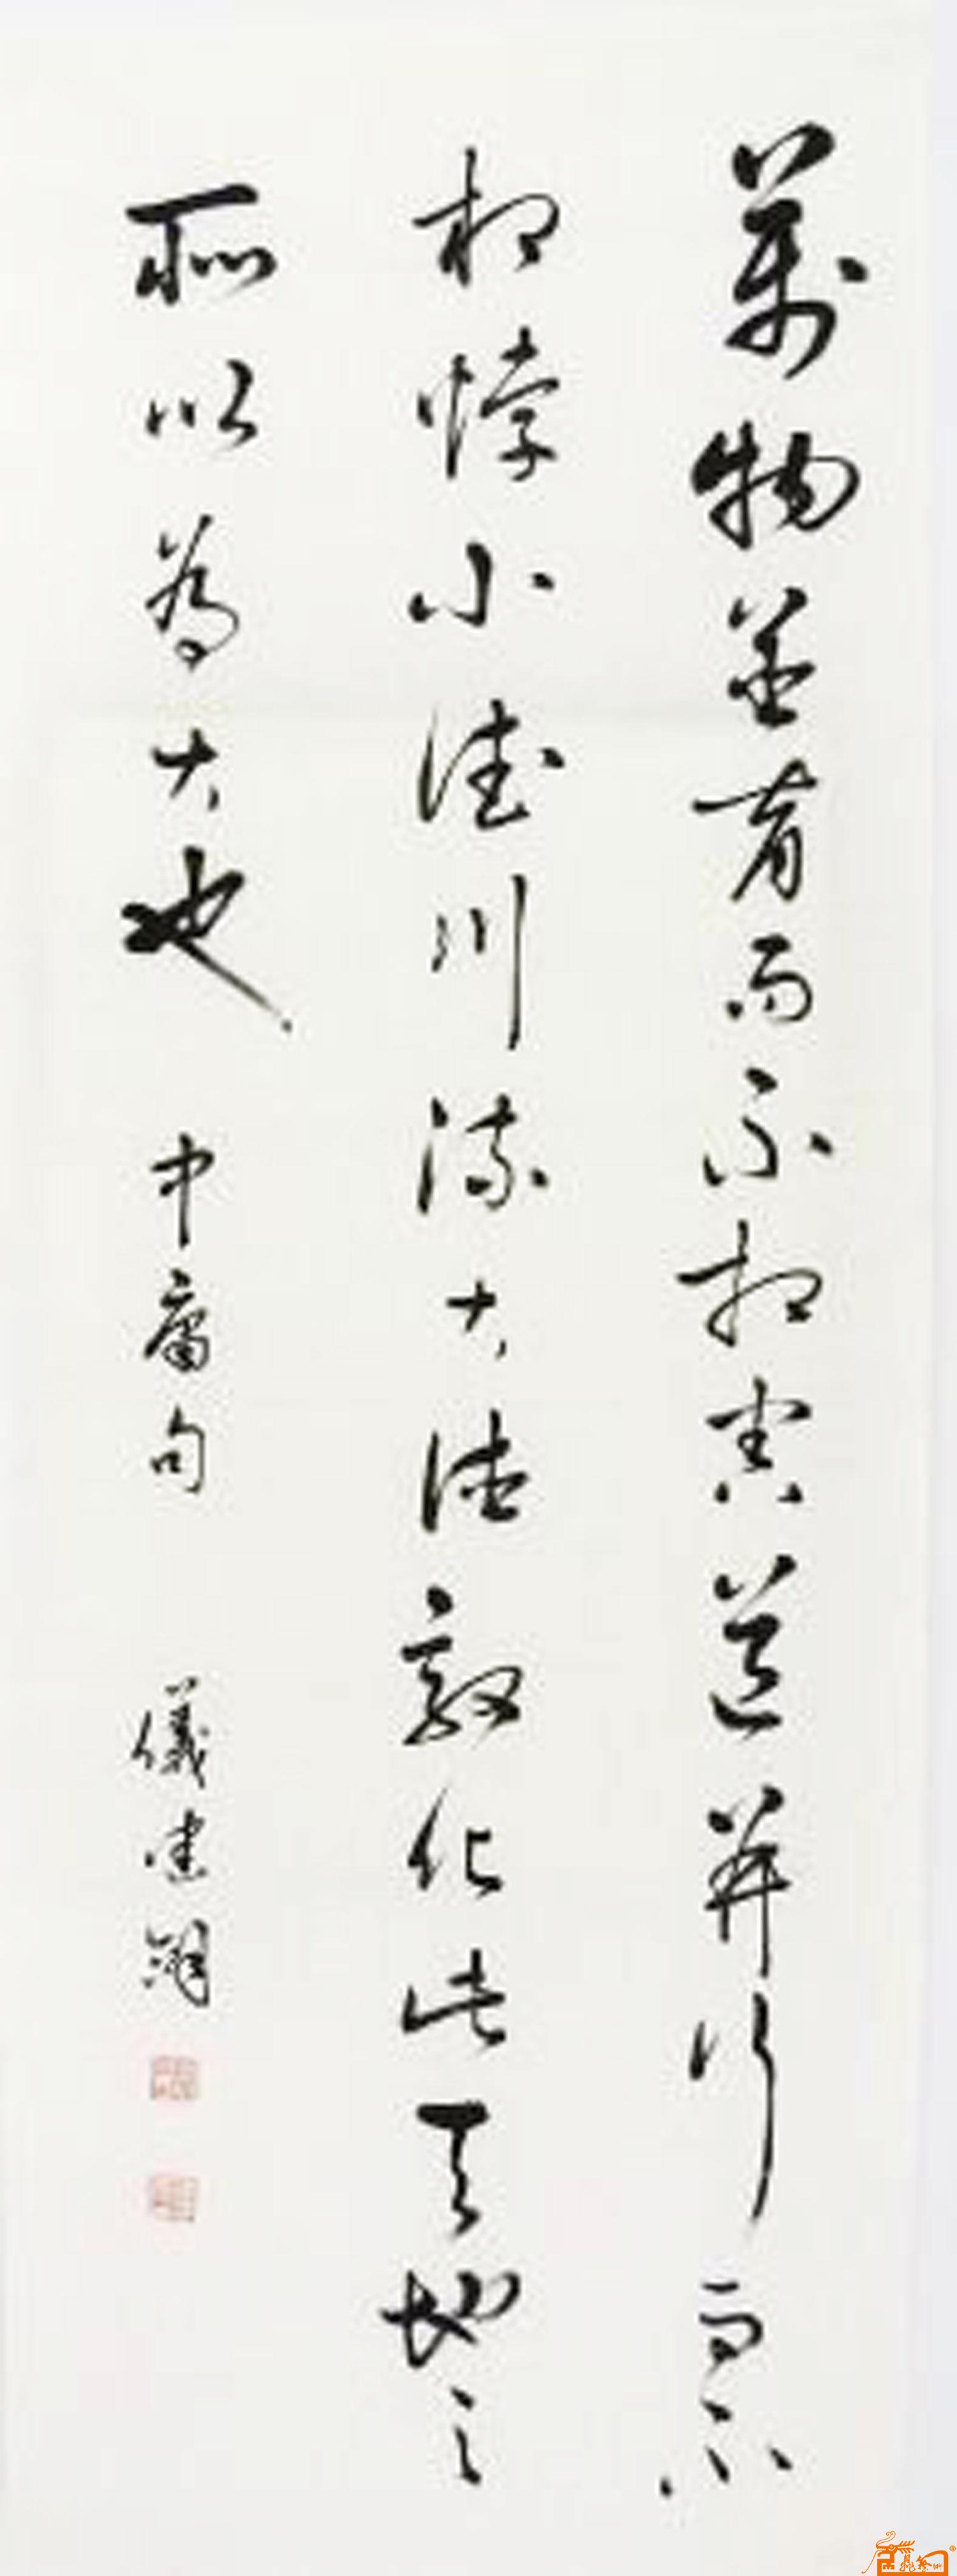 萬物並育而不相害道并行而不
相悖小德川流大德敦化此天地之
所以為大也 中庸句 儀建